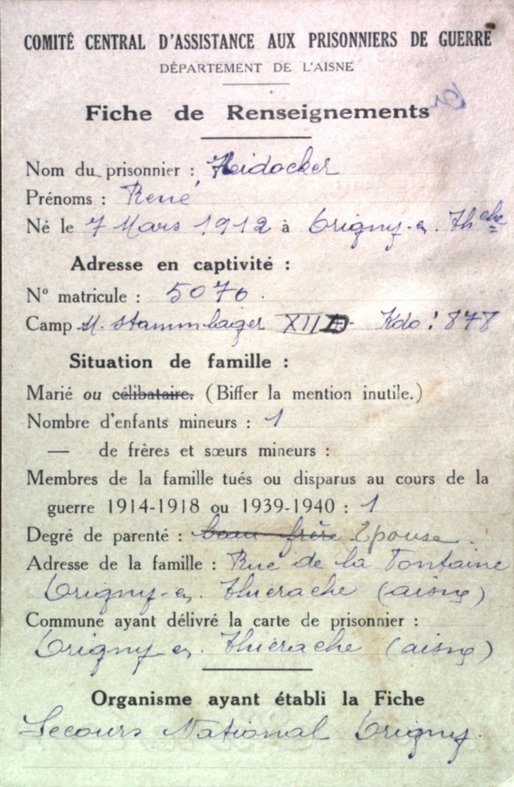 COMITÉ CENTRAL D'ASSISTANCE AUX PRISONNIERS DE GUERRE
DÉPARTEMENT DE L'AISNE
Fiche de Renseignements
Nom du prisonnier : Heidocker
Prénoms : René
Né le 7 Mars 1912 à Origny-en-Thche
Adresse en captivité :
N° matricule : 5070.
Camp M. Stammlager XII D Kdo : 878
Situation de famille :
Marié ou célibataire. (Biffer la mention inutile.)
Nombre d'enfants mineurs : 1
— de frères et sœurs mineurs :
Membres de la famille tués ou disparus au cours de la
guerre 1914-1918 ou 1939-1940 : 1
Degré de parenté : beau frère Epouse.
Adresse de la famille : Rue de la Fontaine
Origny-en-Thiérache (aisne)
Commune ayant délivré la carte de prisonnier :
Origny en Thiérache (aisne)
Organisme ayant établi la Fiche
Secours National Origny.